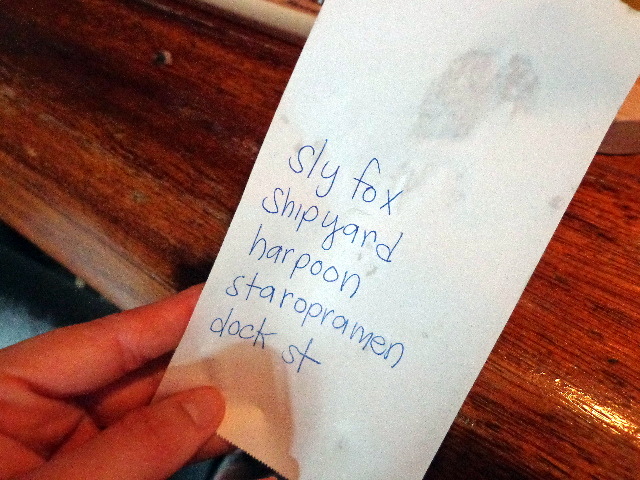 sly fox
shipyard
harpoon
staropramen
dock st